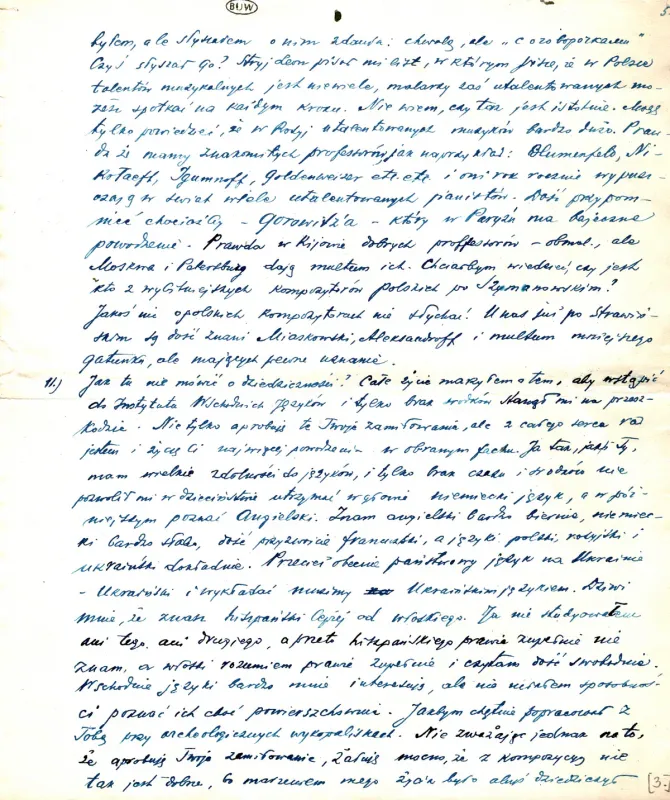 BUW
5.
byłem, ale słyszałem o nim zdania: chwalą, ale "c ozoboporkami"
Czyś słyszał go? Stryj Lem pisał mi list, w którym pisze, że w Polsce
talentów muzykalnych jest niewiele, malarzy zaś utalentowanych mo-
żesz spotkać na każdym kroku. Nie wiem, czy tak jest istotnie. Mogę
tylko powiedzieć, że w Rosyi utalentowanych muzyków bardzo dużo. Praw-
da że mamy znakomitych professorów, jak naprzykład: Blumenfeld, Ni-
kołaeff, Igumnoff, Goldenweizer etc. etc. i oni rok rocznie wypusz-
czają w świat wiele utalentowanych pianistów. Dość przypom-
nieć chociażby - Gorowitz'a - który w Paryżu ma bajeczne
powodzenie. Prawda w Kijowie dobrych proffessorów - obmal., ale
Moskwa i Petersburg dają multum ich. Chciałbym wiedzieć, czy jest
kto z wybitniejszych kompozytorów polskich po Szymanowskim?
Jakoś nic o polskich kompozytorach nie słychać! U nas już po Strawiń-
skim są dość znani Miaskowski, Aleksandroff i multum mniejszego
gatunku, ale mających pewne uznanie.
11.) Jak tu nie mówić o dziedziczności? Całe życie marzyłem o tem, aby wstąpić
do Instytutu Wschodnich Języków i tylko brak środków stanął mi na przesz-
kodzie. Nie tylko aprobuję te Twoje zamiłowania, ale z całego serca rad
jestem i życzę Ci najwięcej powodzenia w obranym fachu. Ja tak, jak i Ty,
mam wielkie zdolności do języków, i tylko brak czasu i środków nie
pozwolił mi w dzieciństwie utrzymać w głowie niemiecki język, a w póź-
niejszym poznać Angielski. Znam angielski bardzo biernie, niemiec-
ki bardzo słabo, dość przyzwoicie francuski, a języki polski, rosyjski i
ukraiński dokładnie. Przecież obecnie państwowy język na Ukrainie
- Ukraiński i wykładać musimy Ukraińskim językiem. Dziwi
mnie, że znasz hiszpański lepiej od włoskiego. Ja nie studyowałem
ani tego, ani drugiego, a przeto hiszpańskiego prawie zupełnie nie
znam, a włoski rozumiem prawie zupełnie i czytam dość swobodnie.
Wschodnie języki bardzo mnie interesują, ale nie miałem sposobnoś-
ci poznać ich choć powierzchownie. Jakbym chętnie popracował z
Tobą przy archeologicznych wykopaliskach. Nie zważając jednak na to,
że aprobuję Twoje zamiłowanie, żałuję mocno, że z kompozycyą nie
tak jest dobrze, bo marzeniem mego życia było abyś dziedziczył
[3.